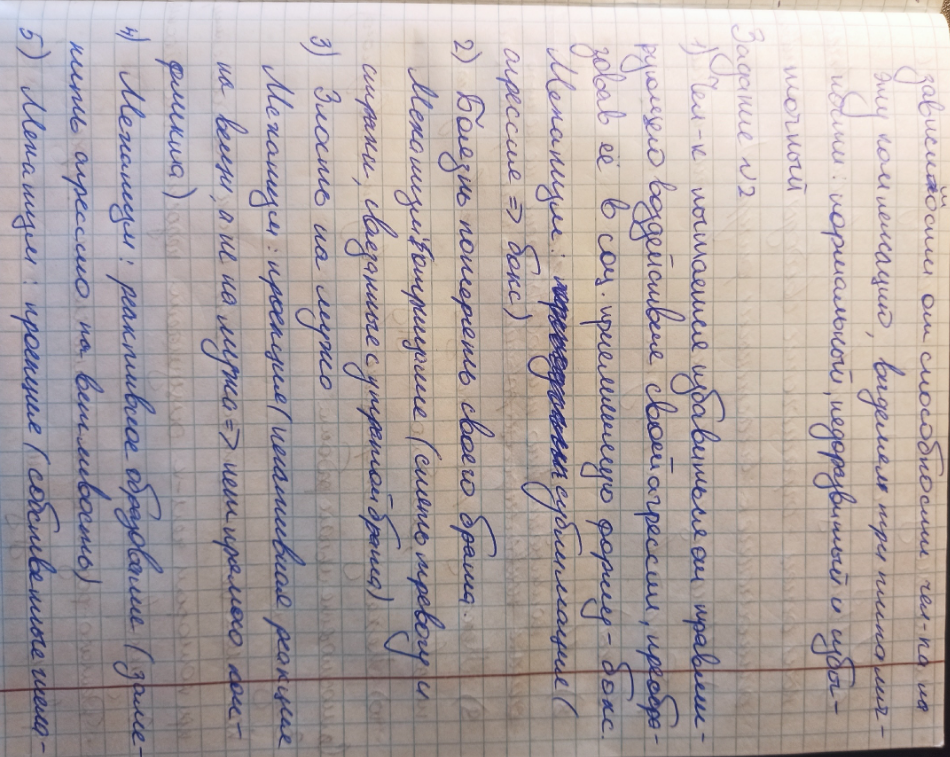 зависимости от способности чел-ка на
эту компенсацию, выделяют три типа лич-
ности: нормальный, недоразвитый и избы-
точный
Задание №2
1) Чел-к пытается избавиться от травми-
рующего воздействия своей агрессии, преобра-
зовав её в соц. приемлемую форму - бокс.
Механизм: сублимация (
агрессия => бокс)
2) Боязнь потерять своего брата.
Механизм: отрицание (снять тревогу и
страхи, связанные с утратой брата)
3) Злость на мужа
Механизм: проекция (негативная реакция
на вещи, а не на мужа => нет прямого кон-
фликта)
4) Механизм: реактивное образование (заме-
нить агрессию на вежливость)
5) Механизм: проекция (собственные жела-